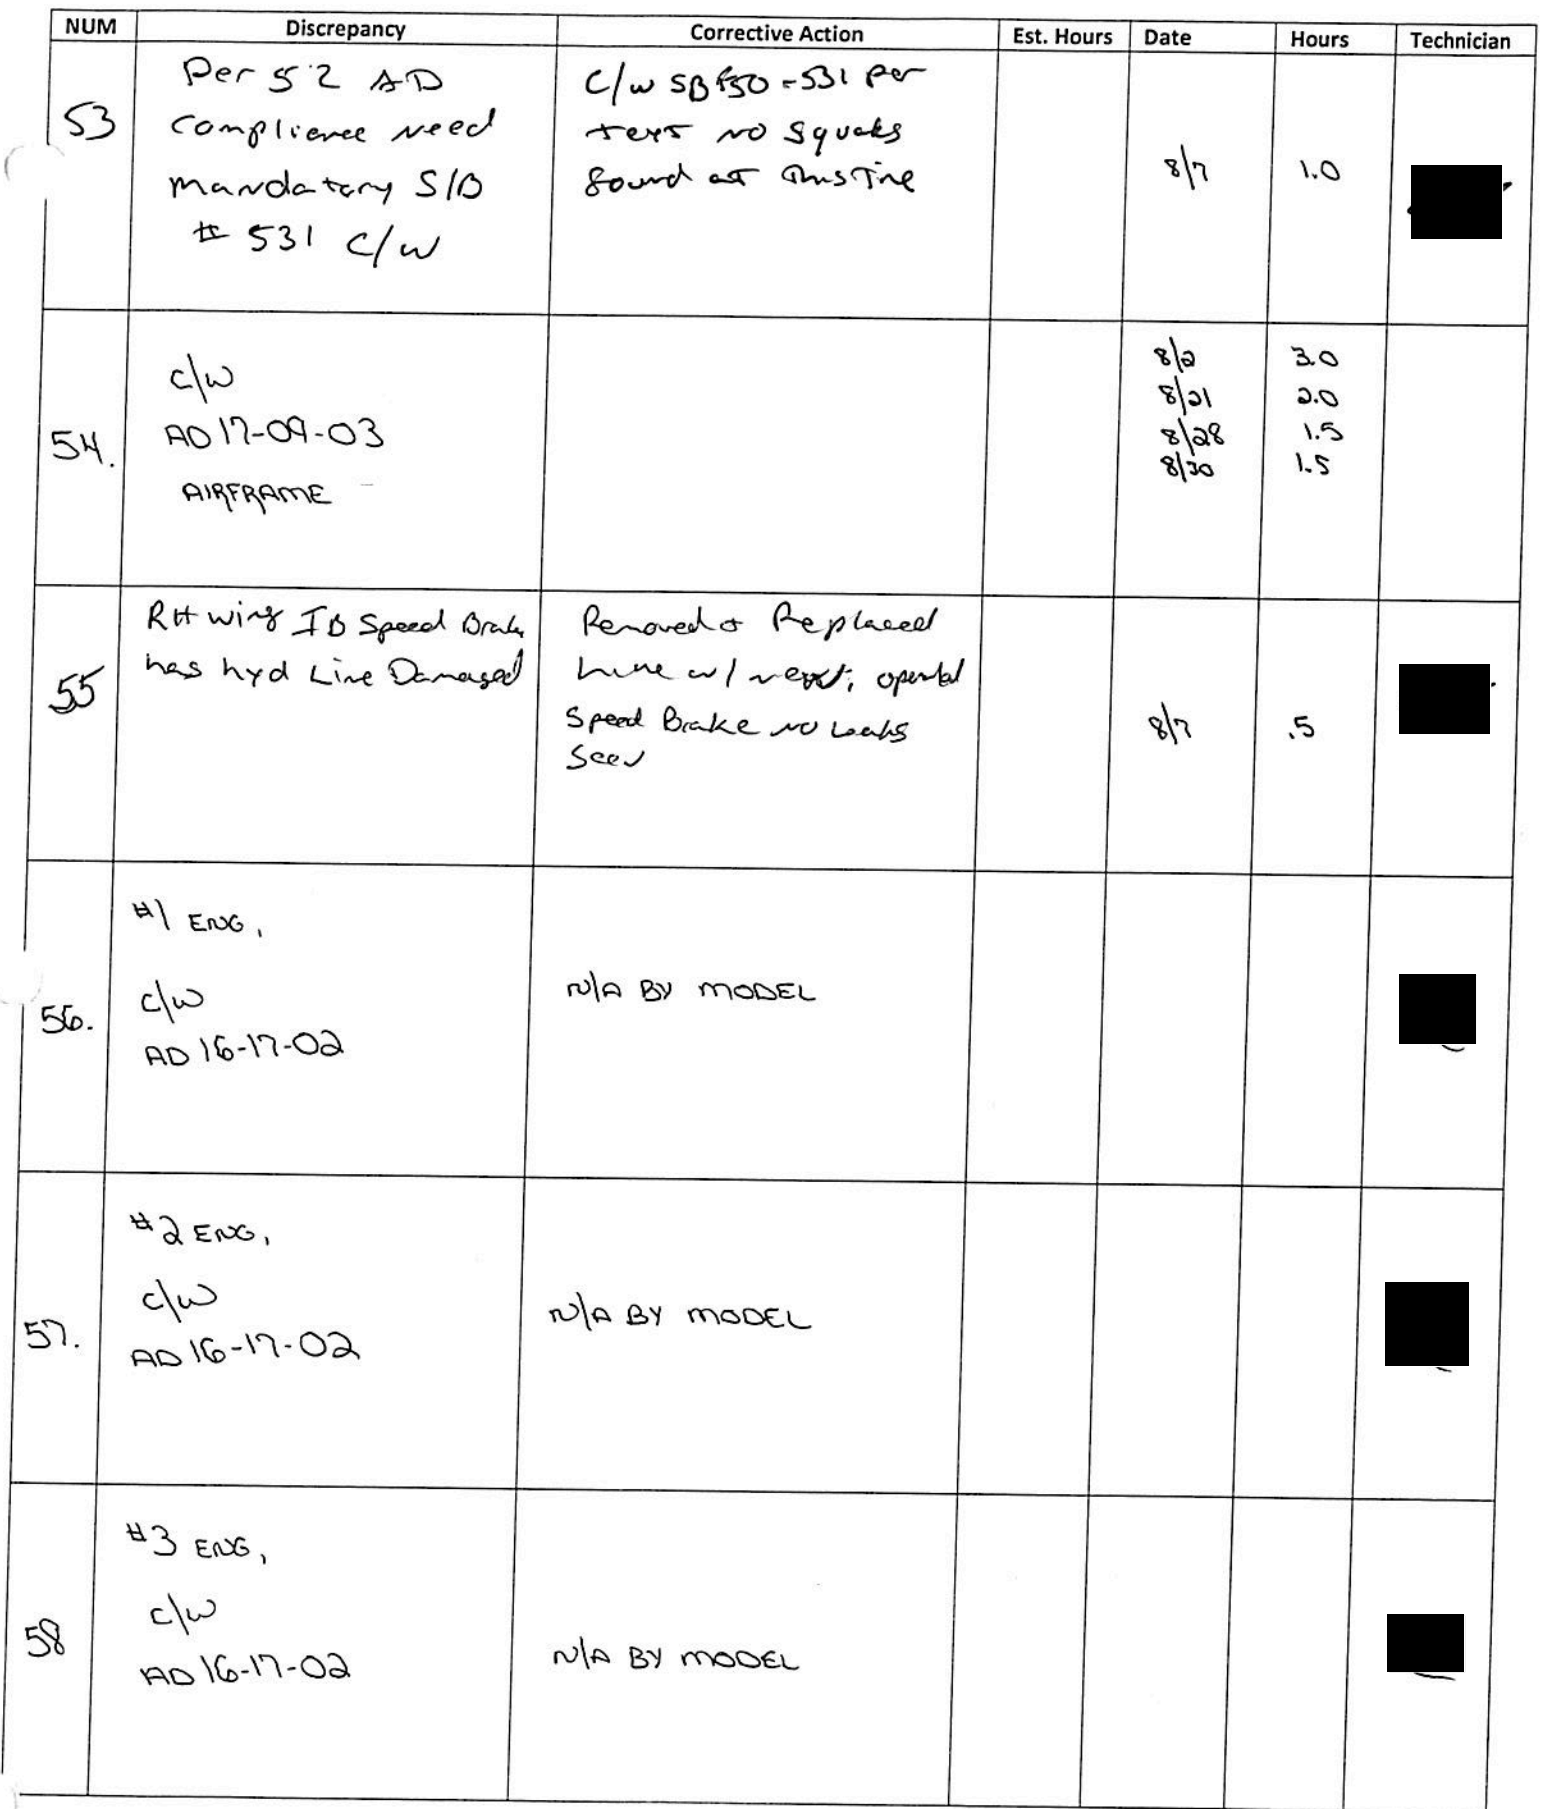 NUM Discrepancy Corrective Action Est. Hours Date Hours Technician
53
Per 5.2 AD
Complience Need
Mandatory S/B
# 531 C/W
C/W SB F50-531 per
text NO Squaks
Found at This Time
8/7
1.0
54.
C/W
AD 17-09-03
AIRFRAME
8/2 3.0
8/21 2.0
8/28 1.5
8/30 1.5
55
RH wing IB Speed Brake
has hyd Line Damaged
Removed & Replaced
Line w/ new; operated
Speed Brake NO Leaks
Seen
8/7
.5
56.
#1 ENG,
C/W
AD 16-17-02
N/A BY MODEL
57.
#2 ENG,
C/W
AD 16-17-02
N/A BY MODEL
58
#3 ENG,
C/W
AD 16-17-02
N/A BY MODEL